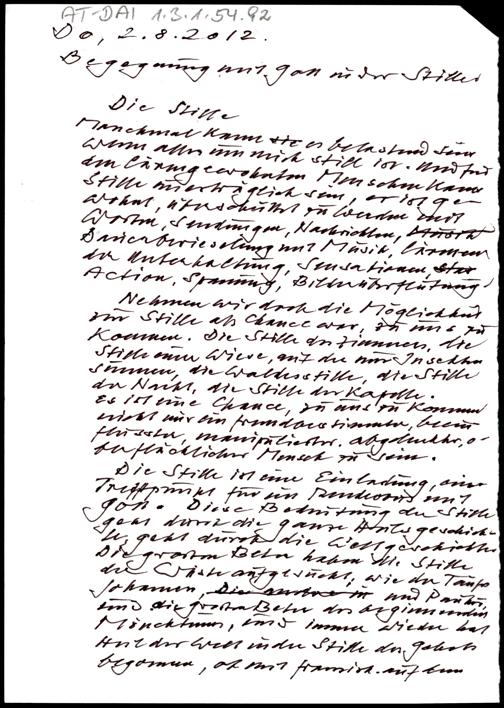 AT-DAI 1.3.1.54.92
Do, 2.8.2012.
Begegnung mit Gott in der Stille
Die Stille
Manchmal kann sie es belastend sein
wenn alles um mich still ist. Und für
den Lärmgewohnten Menschen kann
Stille unerträglich sein, er ist ge-
wohnt, überschüttet zu werden mit
Worten, Sendungen, Nachrichten,
Dauerberieselung mit Musik, Lärmender
der Unterhaltung, Sensationen,
Action, Spannung, Bilderüberflutung.
Nehmen wir doch die Möglichkeit
zur Stille als Chance war, zu uns zu
kommen. Die Stille des Zimmers, die
Stille einer Wiese, auf der nur Insekten
summen, die Waldesstille, die Stille
der Nacht, die Stille der Kapelle.
Es ist eine Chance, zu uns zu kommen
nicht nur ein fremdbestimmter, beein-
flusster, manipulierter, abgelenkter, o-
berflächlicher Mensch zu sein.
Die Stille ist eine Einladung, ein
Treffpunkt für ein Rendevous mit
Gott. Diese Bedeutung der Stille
geht durch die ganze Heilsgeschich-
te, geht durch die Weltgeschichte
Die grossen Beter haben die Stille
der Wüste aufgesucht, wie der Täufer
Johannes, und Paulus,
und die grossen Beter des beginnenden
Mönchtums, und immer wieder hat
Heil der Welt in der Stille des Gebets
begonnen, ob mit Franzisk. auf dem